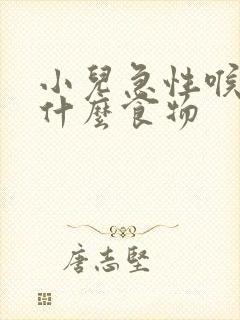 小兒急性喉
什麼食物
唐志堅